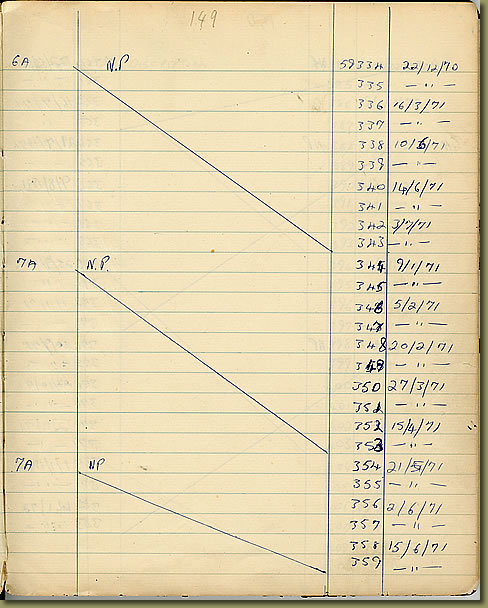 149
6A N.P 59334 22/12/70
335 — " —
336 16/3/71
337 — " —
338 10/5/71
339 — " —
340 14/6/71
341 — " —
342 3/7/71
343 — " —
7A N.P. 344 9/1/71
345 — " —
346 5/2/71
347 — " —
348 20/2/71
349 — " —
350 27/3/71
351 — " —
352 15/4/71
353 — " —
7A NP 354 21/5/71
355 — " —
356 2/6/71
357 — " —
358 15/6/71
359 — " —